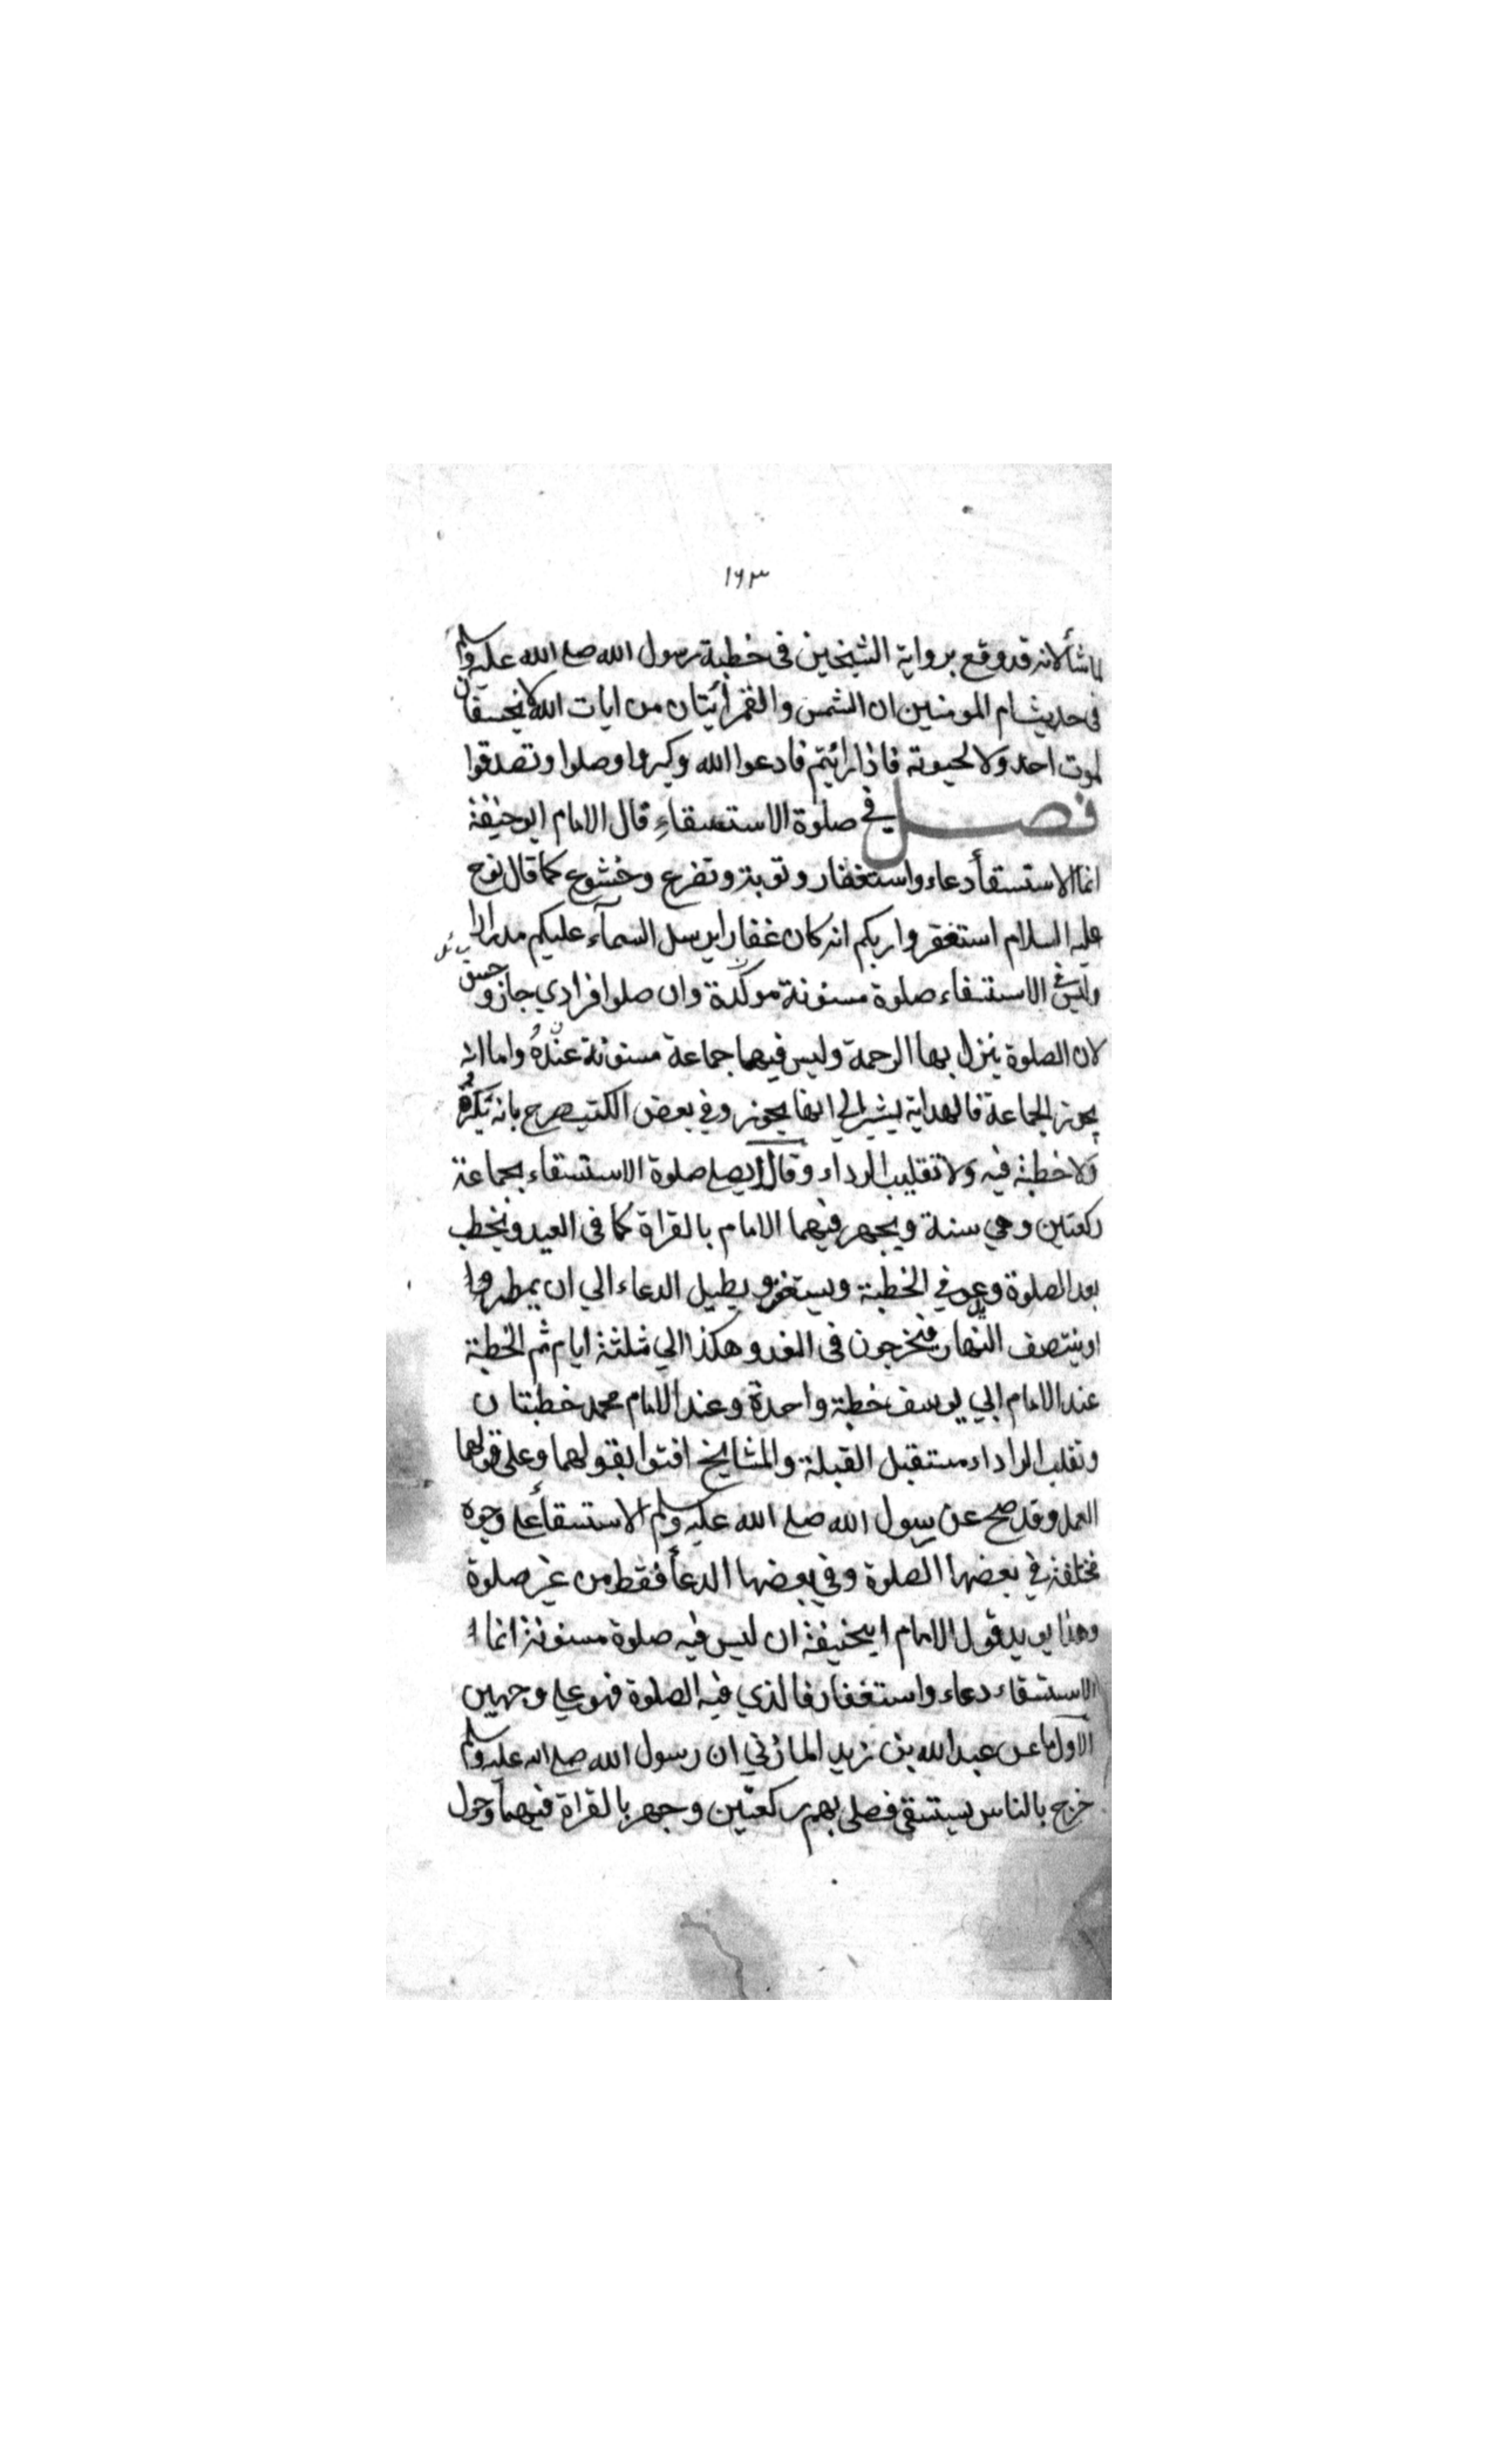 ١٦٣
لما شألانه قد وقع برواية الشيخين فى خطبة رسول الله صلى الله عليه وسلم
فى حديث ام المومنين ان الشمس والقمر أيتان من ايات الله لا نيخسفان
لموت احد ولا لحيوته فاذا رائيتم فادعوا الله وكبروا وصلوا وتصدقوا
فصل في صلوة الاستسقاء قال الامام ابو حنيفة
انما الاستسقأ دعاء واستغفار وتوبة وتضرع وخشوع كما قال نوح
عليه السلام استغفروا ربكم انه كان غفارا يرسل السمآء عليكم مدرارا
وليس في الاستسقاء صلوة مسنونة موكدة وان صلوا فرادي جاز وحسن
لان الصلوة ينزل بها الرحمة وليس فيها جماعة مسنونة عنده واما انه
يجوز الجماعة فالهداية يشير الي انها يجوز وفي بعض الكتب صرح بانه يكره
ولا خطبة فيه ولا تقليب الرداء وقالا يصلي صلوة الاستسقاء بجماعة
ركعتين وهي سنة ويجهر فيهما الامام بالقراة كما فى العيد ويخطب
بعد الصلوة ويدعو في الخطبة ويستغفر ويطيل الدعاء الي ان يمطروا
او ينتصف النهار فيخرجون فى الغد وهكذا الي ثلثة ايام ثم الخطبة
عند الامام ابي يوسف خطبة واحدة وعند الامام محمد خطبتان
وتقلب الرداء مستقبل القبلة والمشايخ افتوا بقولهما وعلى قولهما
العمل وقد صح عن رسول الله صلى الله عليه وسلم الاستسقأ على وجوه
مختلفة في بعضها الصلوة وفي بعضها الدعأ فقط من غير صلوة
وهذا يويد قول الامام ابيحنيفة ان ليس فيه صلوة مسنونة انما
الاستسقاء دعاء واستغفار فالذي فيه الصلوة فهو على وجهين
الاول ما عن عبد الله بن زيد المازني ان رسول الله صلى الله عليه وسلم
خرج بالناس يستسقى فصلى بهم ركعتين وجهر بالقراة فيهما وحول